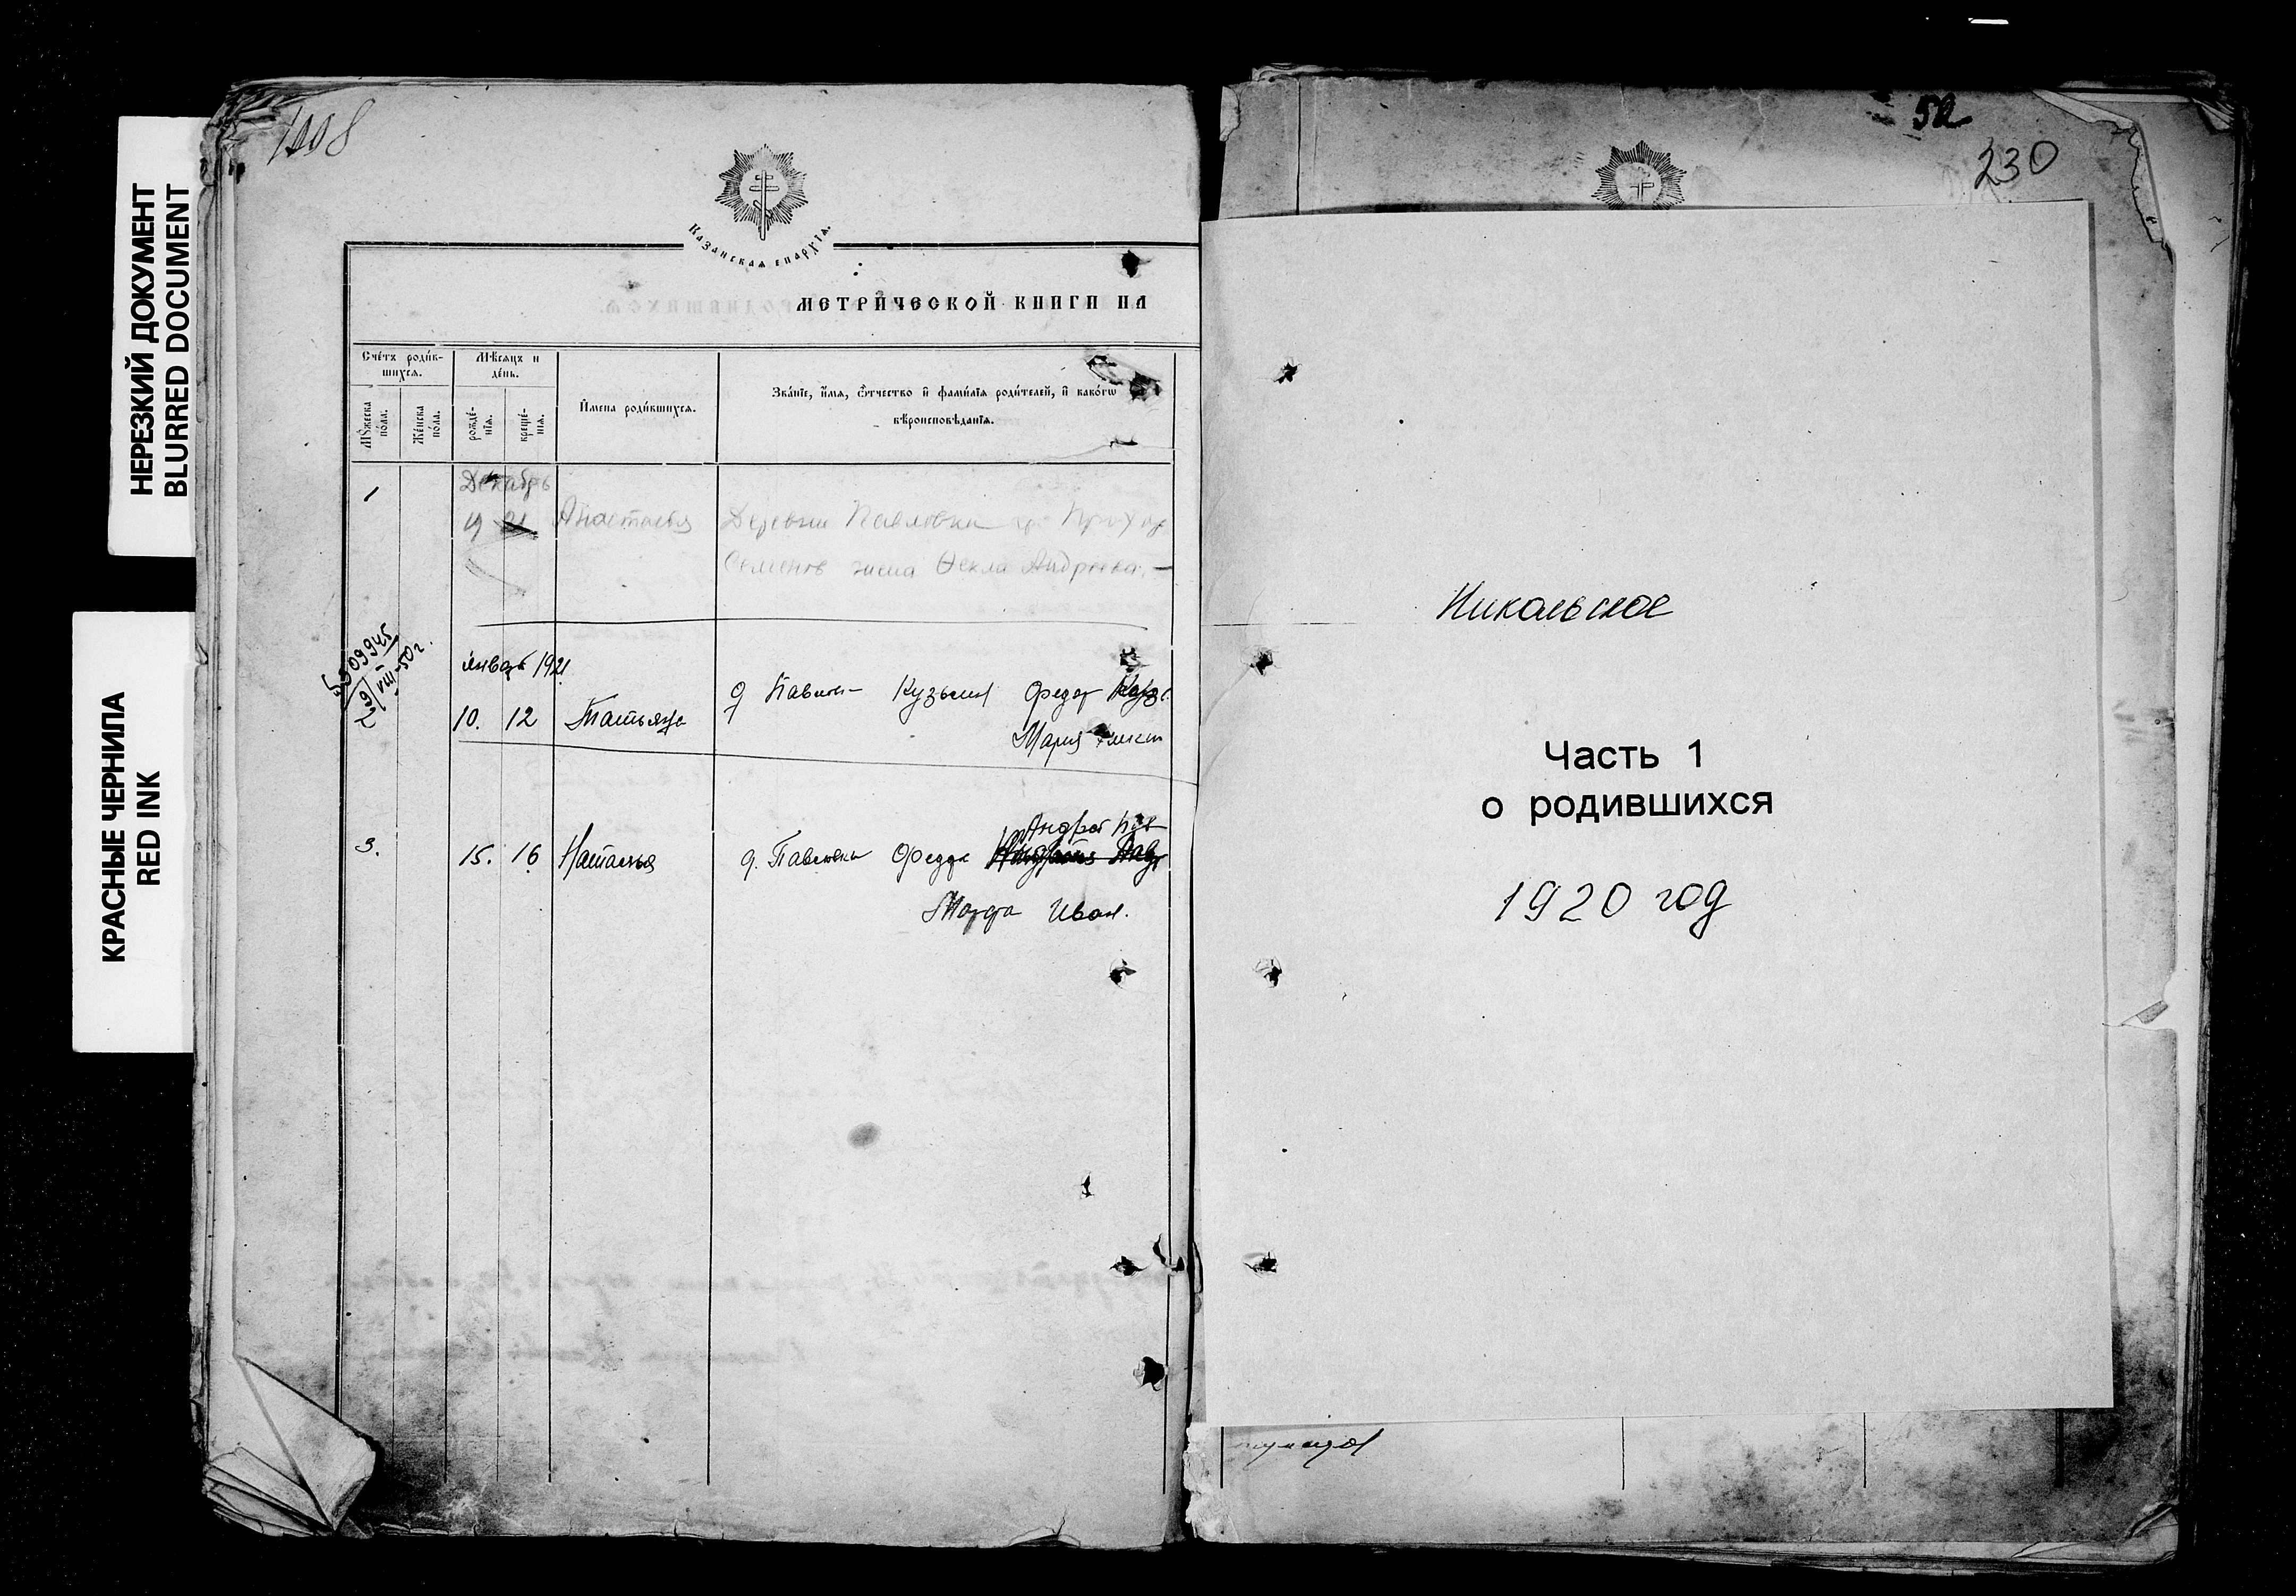 НЕРЕЗКИЙ ДОКУМЕНТ
BLURRED DOCUMENT
КРАСНЫЕ ЧЕРНИЛА
RED INK
Казанская епархїѧ.
МЕТРИЧЕСКОЙ КНИГИ НА
Сче́тъ роди́в-
шихся.
Му́жеска
по́ла.
Же́нска
по́ла.
Мѣ́сяцъ и
де́нь.
рожде́-
нїѧ.
креще́-
нїѧ.
И҆мена роди́вшихся.
Зва́нїе, и҆́мѧ, ѻ҆́тчество и҆ фами́лїѧ роди́телей, и҆ како́гѡ
вѣроисповѣ́данїѧ.
1
Декабрь
19 21 Анастасья Деревни Павловка гр. Прохор
Семенов жена Ѳекла Андреева. —
509945
29/VIII-50г.
январь 1921
10. 12 Татьяна д Павлов- Кузьмин Федот
Мария
Андрей Пав
3. 15. 16 Наталья д. Павловки Федор
Марфа Иван.
52
230
Никольское
Часть 1
о родившихся
1920 год